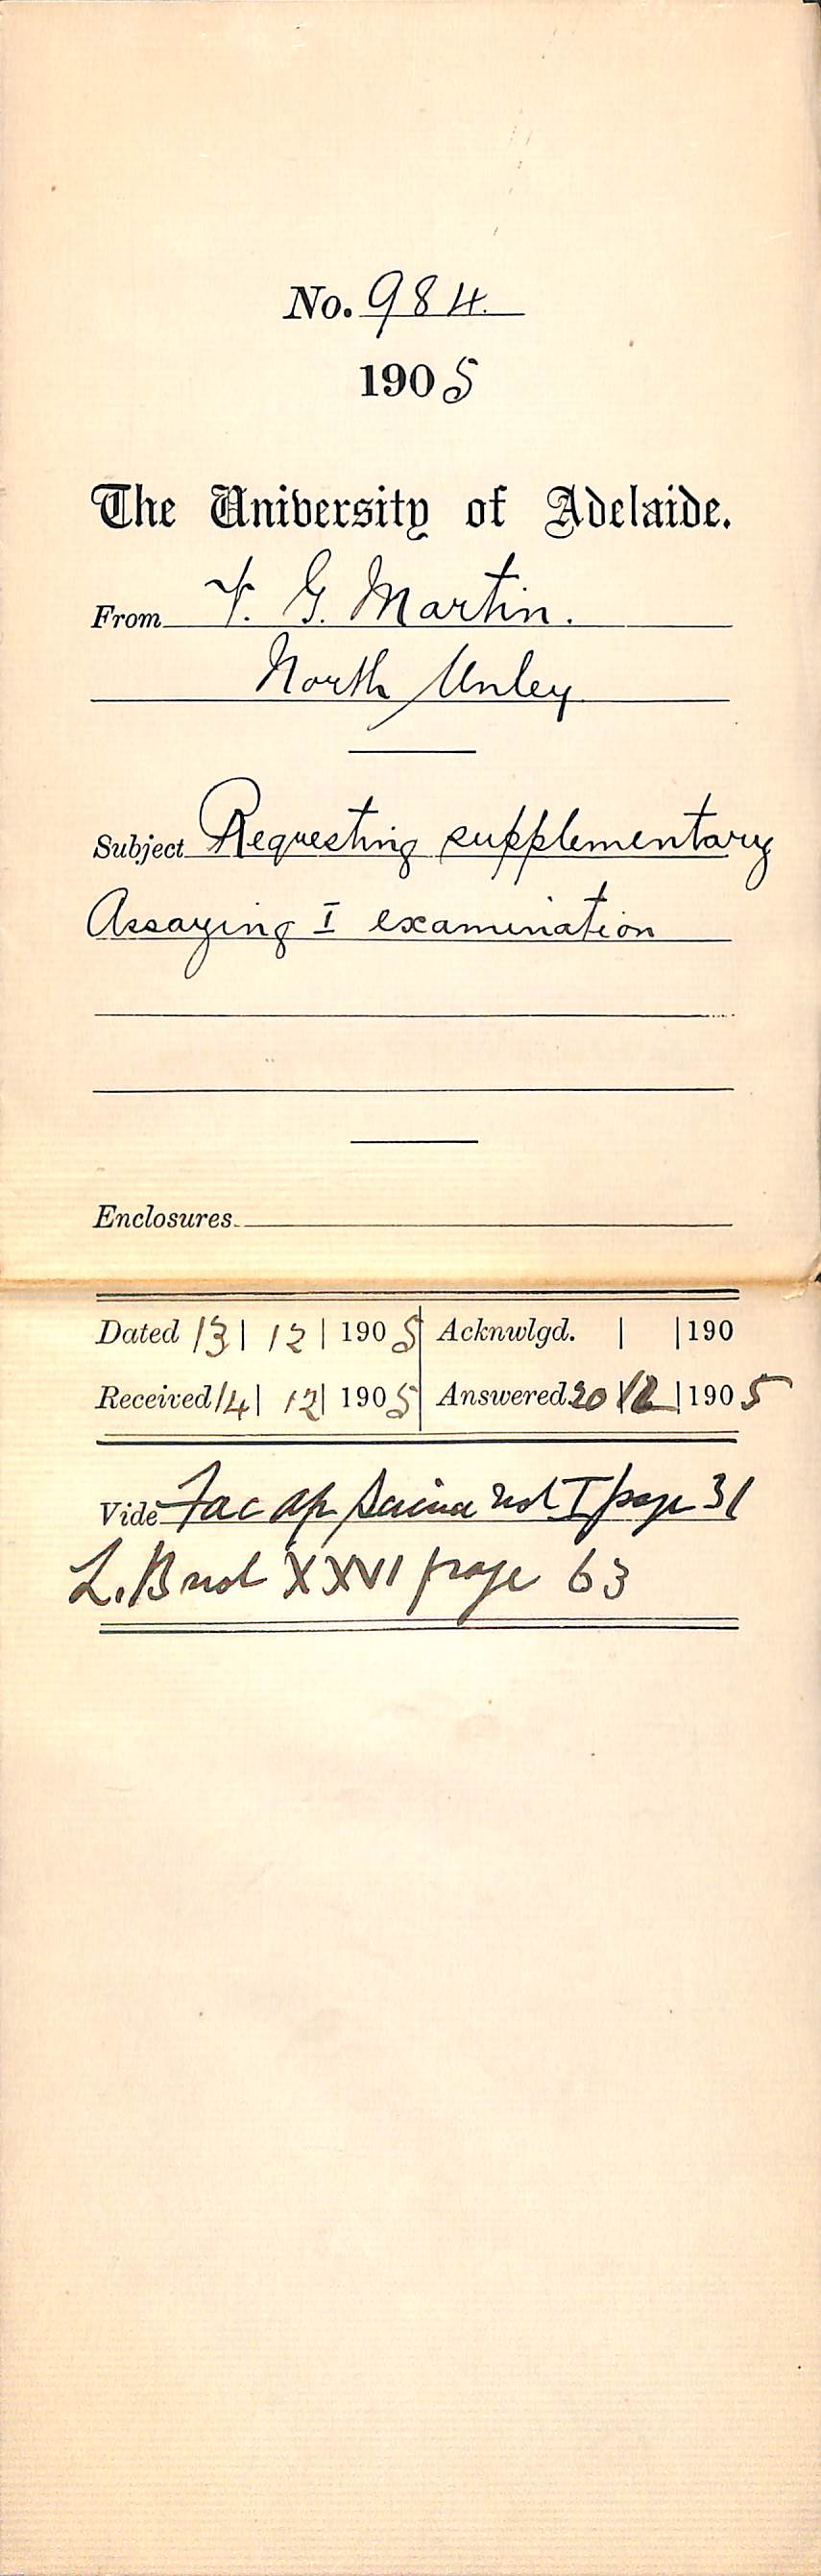 No. 984.
1905
The University of Adelaide.
From F. G. Martin.
North Unley
Subject Requesting supplementary
Assaying I examination
Enclosures
Dated 13 | 12 | 1905 Acknwlgd. | | 190
Received 14 | 12 | 1905 Answered 20 | 12 | 1905
Vide Fac Ap Science vol I page 31
L.B vol XXVI page 63